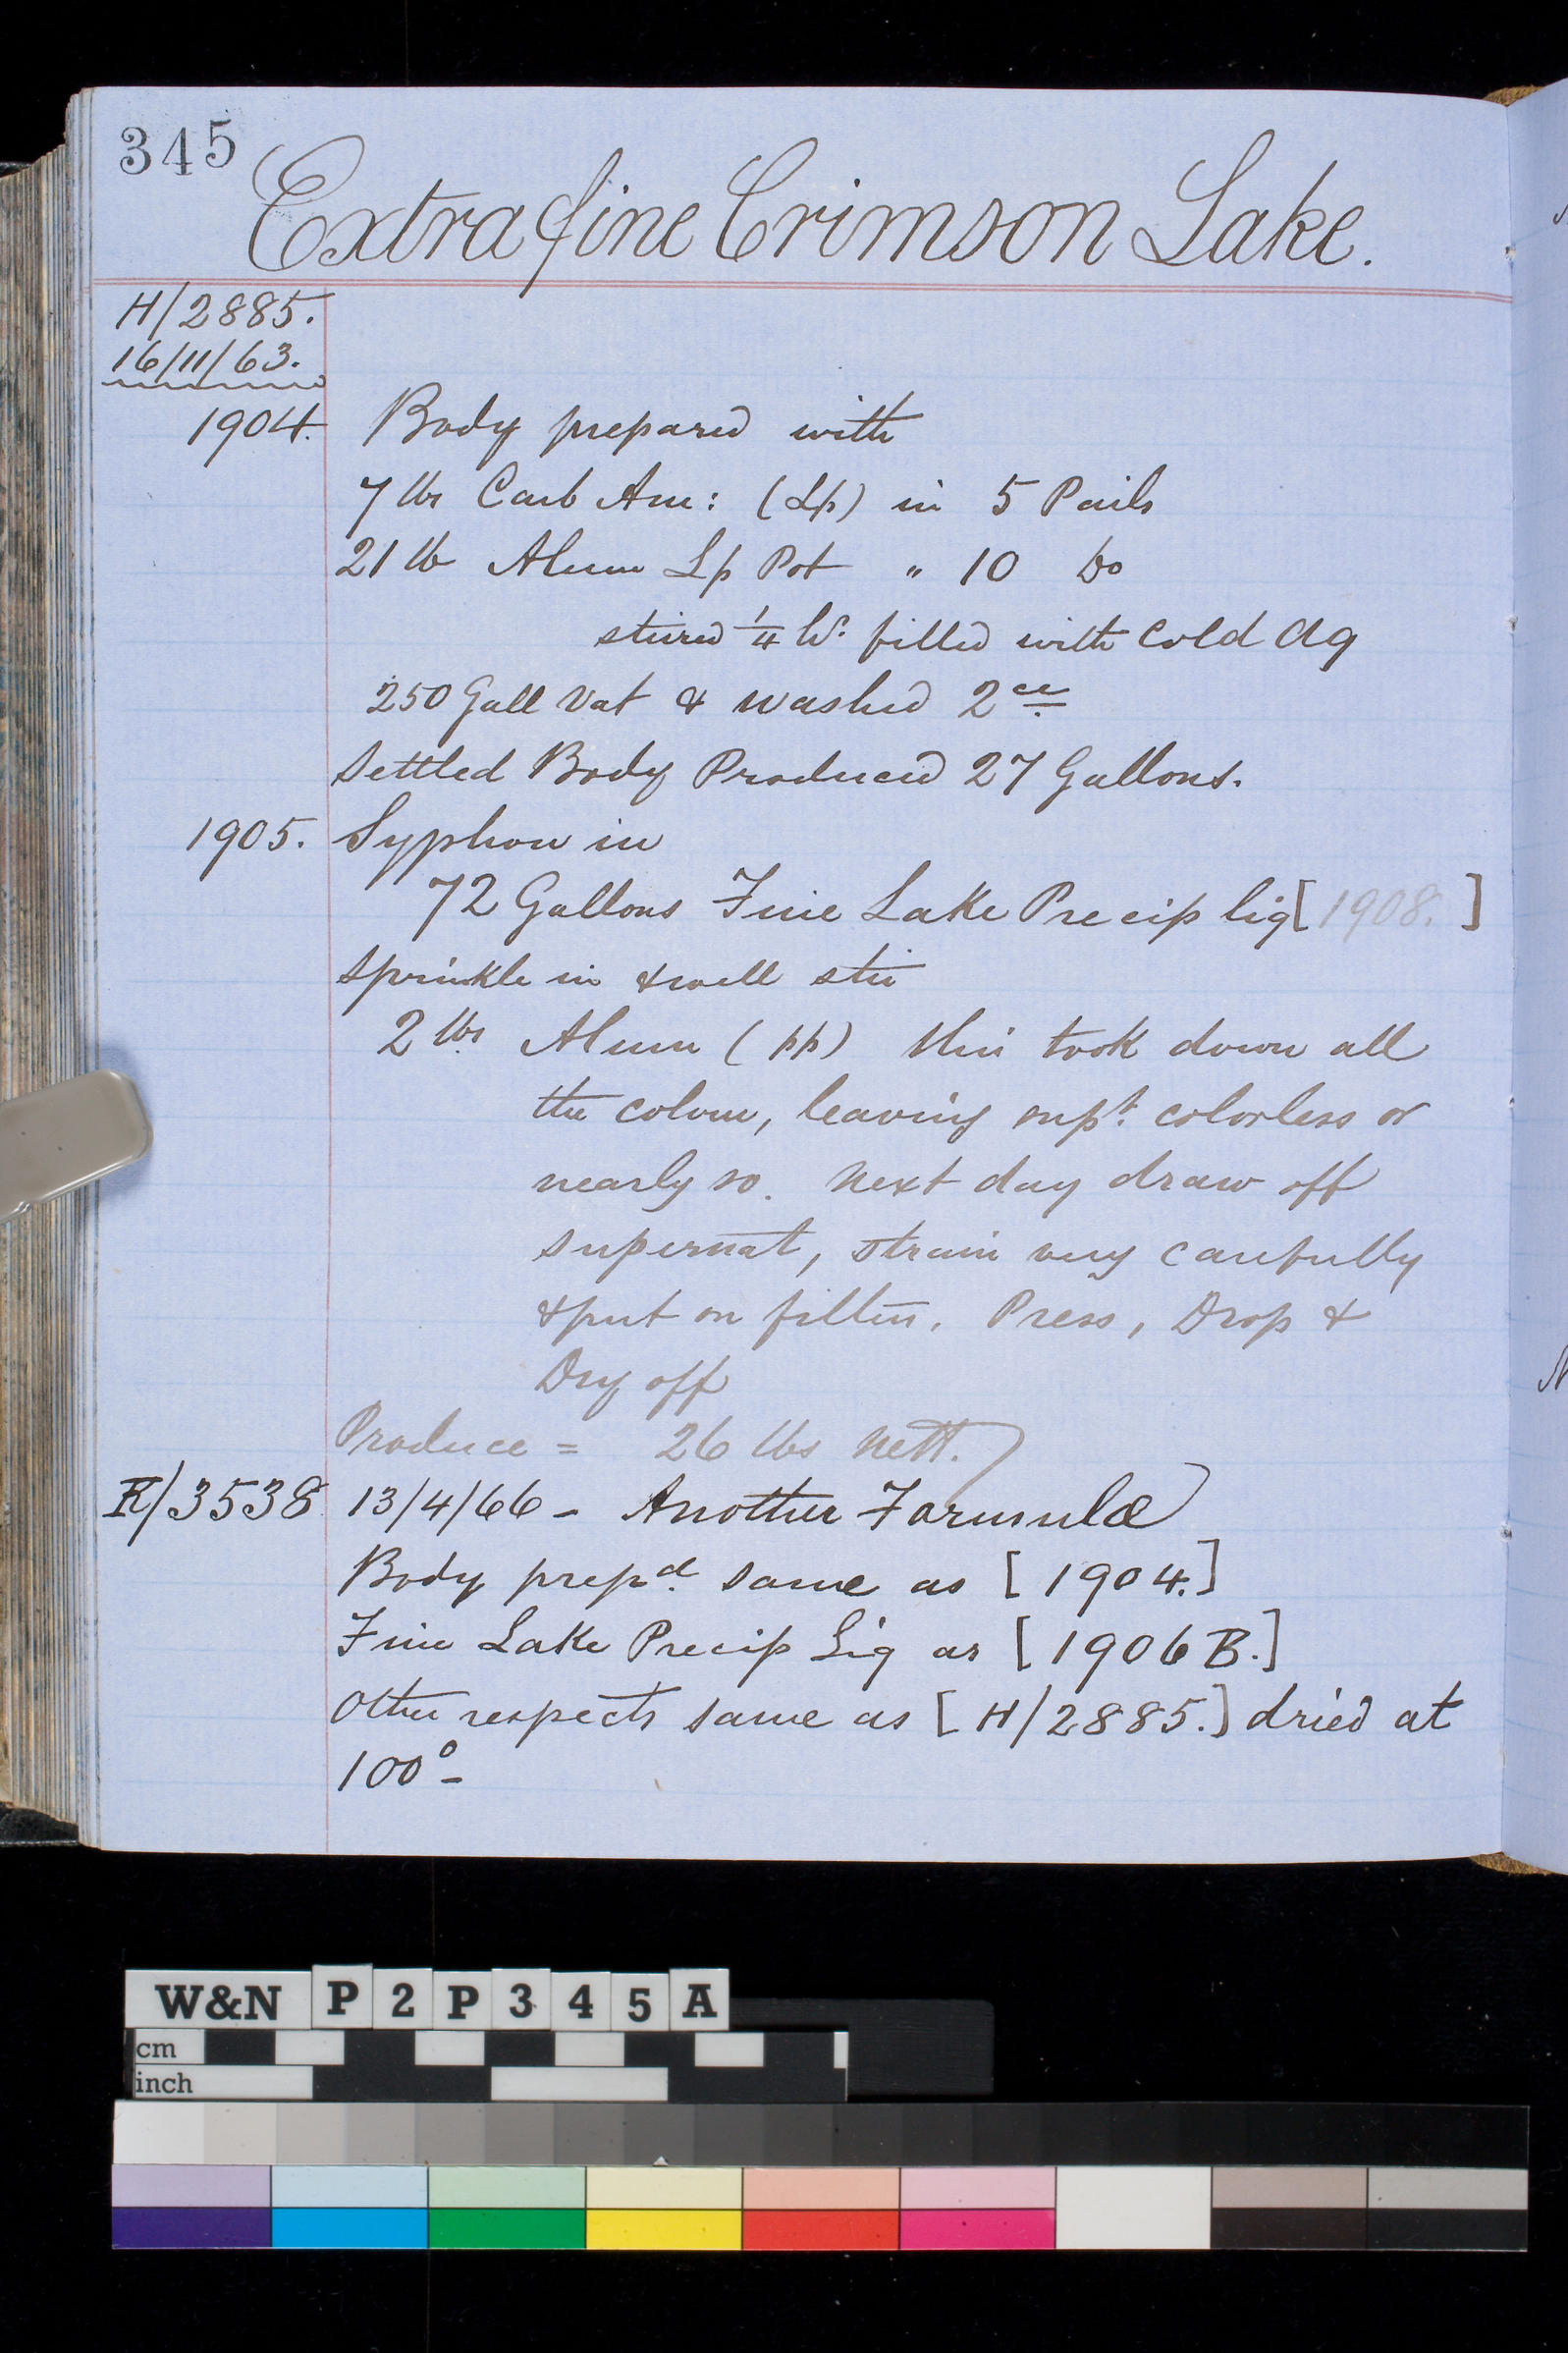 345
Extra fine Crimson Lake.
H/2885.
16/11/63.
1904. Body prepared with
7 lbs Carb Am: (Lp) in 5 Pails
21 lb Alum Lp Pot " 10 Do
stirred 1/4 hr. filled with Cold Aq
250 Gall Vat & washed 2ce
Settled Body Produced 27 Gallons.
1905. Syphon in
72 Gallons Fine Lake Precip liq [1908.]
sprinkle in & well stir
2 lbs Alum (pp) this took down all
the colour, leaving supt. colorless or
nearly so. Next day draw off
supernat, strain very carefully
& put on filters. Press, Drop &
Dry off
Produce = 26 lbs nett.
R/3538 13/4/66 - Another Formula
Body prepd. same as [1904.]
Fine Lake Precip Liq as [1906 B.]
Other respects same as [H/2885.] dried at
100° -
W&N P2P345A
cm
inch